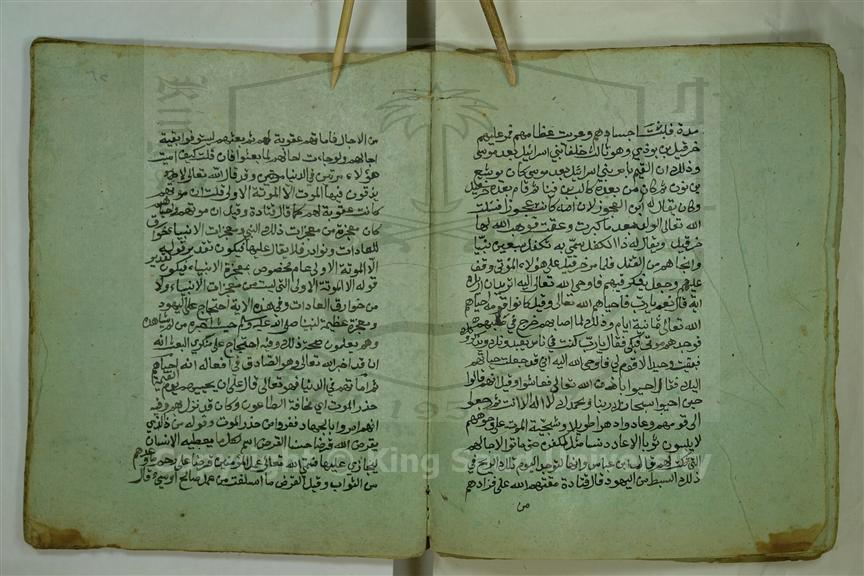 مدة فلبثت اجسادهم وعريت عظامهم فمر عليهم
خرقيل بن بوذي وهو ثالث خلفا بني اسرائيل بعد موسى
وذلك ان القيم بامر بني اسرائيل بعد موسى كان يوشع
بن نون ثم كان من بعده كالب بن فينا ثم قام بعده خرقيل
وكان يقال له ابن العجوز لان امه كانت عجوزا فسئلت
الله تعالى الولد بعد ما كبرت وعقمت فوهبه الله لها
خرقيل ويقال له ذا الكفل سمى به تكفل سبعين نبيا
وانجاهم من القتل فلما مر خرقيل على هؤلاء الموتى وقف
عليهم وجعل يفكر فيهم فاوحى الله تعالى اليه اتريد ان اريك
اية قال نعم يا رب فاحياهم الله تعالى وقيل كانوا قومه احياهم
الله تعالى ثمانية ايام وذلك لما اصابهم خرج في طلبهم
فوجدهم موتى فبكى فقال يا رب كنت في قوم يعبدونك ويذكرونك
فبقيت وحيدا لا قوم لي فاوحى الله اليه اني قد جعلت حياتهم
اليك فقال احيوا باذن الله تعالى فعاشوا وقيل انهم قالوا
حين احيوا سبحانك ربنا وبحمدك لا اله الا انت ثم رجعوا
الى قومهم وعادوا دهرا طويلا وسحنة الموت على وجوههم
لا يلبسون ثوبا الا عاد دنسا مثل الكفن حتى ماتوا لاجالهم
التي كتبت لهم قال ابن عباس وانها لتوجد اليوم تلك الريح في
ذلك السبط من اليهود قال قتادة مقتهم الله على فرارهم
من
من الاجال فاماتهم عقوبة لهم ثم بعثهم ليستوفوا بقية
اجالهم ولو جاءت اجالهم لما بعثوا فان قلت كيف اميت
هؤلاء مرتين في الدنيا وقد قال الله تعالى لا
يذوقون فيها الموت الا الموتة الاولى قلت ان موتهم
كانت عقوبة لهم كما قال قتادة وقيل ان موتهم واحياهم
كان معجزة من معجزات ذلك النبي ومعجزات الانبياء خوارق
للعادات ونوادر فلا يقال عليها فيكون تقدير قوله
الا الموتة الاولى عام مخصوص بمعجزة الانبياء فيكون تقدير
قوله الا الموتة الاولى التي ليست من معجزات الانبياء ولا
من خوارق العادات وفي هذه الاية احتجاج على اليهود
ومعجزة عظيمة لنبينا صلى الله عليه وسلم حيث اخبرهم من لم يشاهده
وهم يعلمون صحة ذلك وفيه احتجاج على منكري البعث
ان قد اخبر الله تعالى وهو الصادق في افعاله انه احياهم
بعد اماتتهم في الدنيا فهو تعالى قادر على ان يحييهم يوم القيمة
حذر الموت اي مخافة الطاعون وكان قد نزل بهم وقيل
انهم امروا بالجهاد ففروا من حذر الموت وقوله من ذا الذي
يقرض الله قرضا حسنا القرض اسم لكل ما يعطيه الانسان
ليجازى عليها فسمى الله تعالى عمل المؤمنين قرضا على رجاء ما وعدهم
من الثواب وقيل القرض ما اسلفت من عمل صالح او سيئ قال
© King Saud University
195